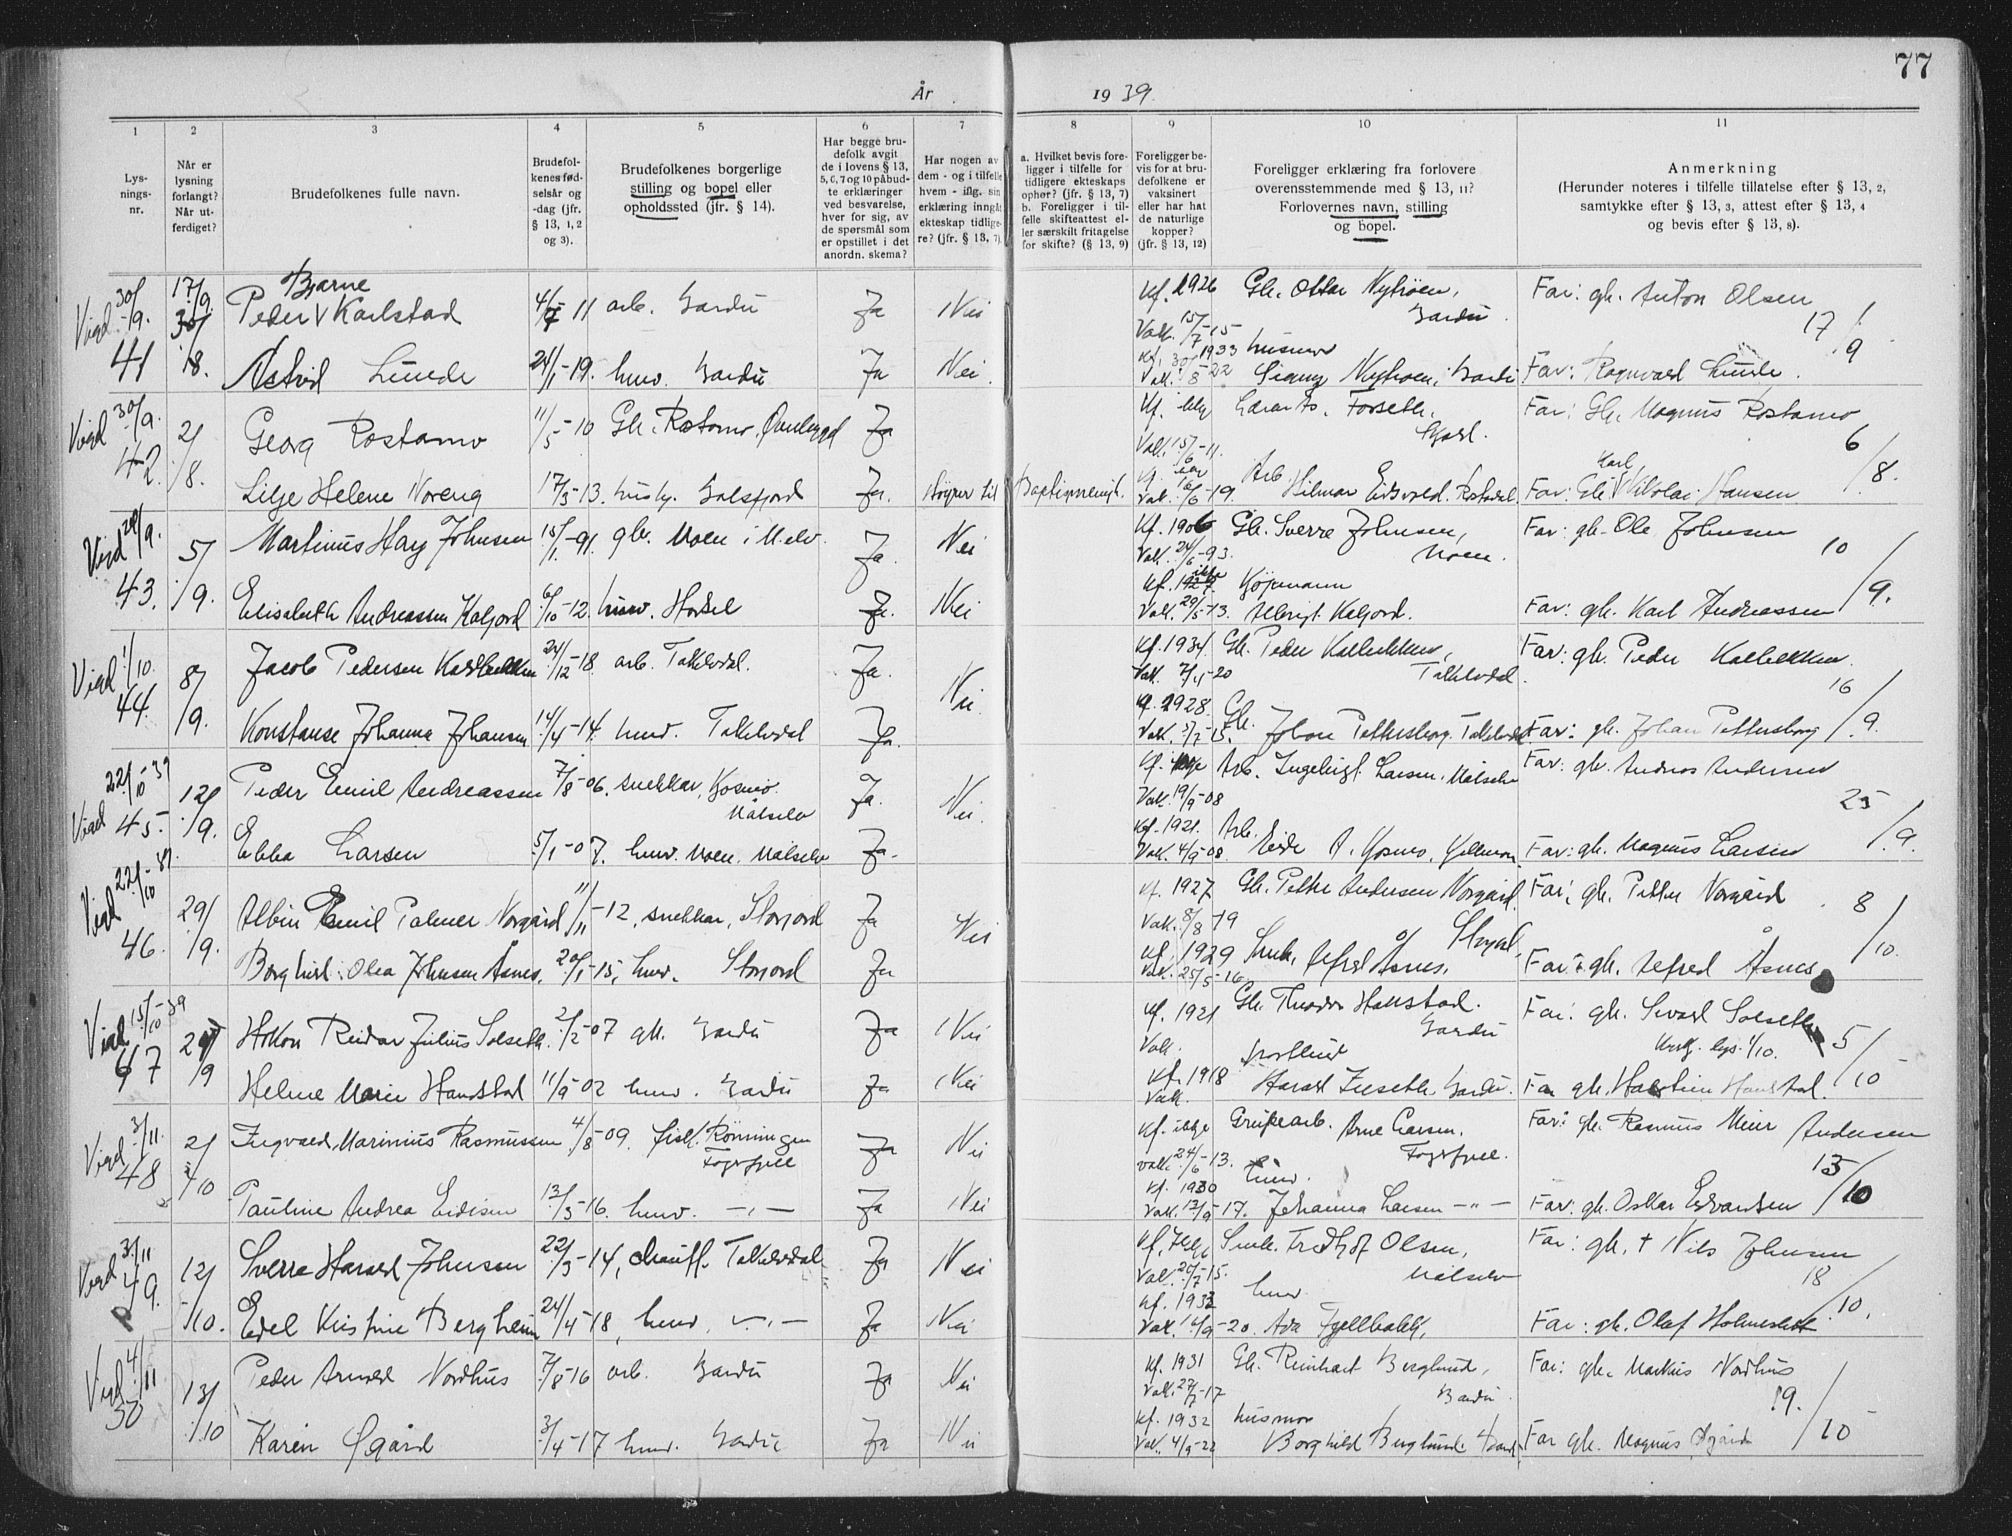 77
År 1939
1 2 3 4 5 6 7 8 9 10 11
Lys-
nings-
nr.
Når er
lysning
forlangt?
Når ut-
ferdiget?
Brudefolkenes fulle navn.
Brudefol-
kenes fød-
selsår og
-dag (jfr.
§ 13, 1, 2
og 3).
Brudefolkenes borgerlige
stilling og bopel eller
opholdssted (jfr. § 14).
Har begge bru-
defolk avgit
de i lovens § 13,
5, 6, 7 og 10 påbud-
te erklæringer
ved besvarelse,
hver for sig, av
de spørsmål som
er opstillet i det
anordn. skema?
Har nogen av
dem - og i tilfelle
hvem - iflg. sin
erklæring inngåt
ekteskap tidlige-
re? (jfr. § 13, 7).
a. Hvilket bevis fore-
ligger i tilfelle for
tidligere ekteskaps
ophør? (jfr. § 13, 7)
b. Foreligger i til-
felle skifteattest el-
ler særskilt fritagelse
for skifte? (§ 13, 9)
Foreligger be-
vis for at bru-
defolkene er
vaksinert
eller har hat
de naturlige
kopper?
(jfr. § 13, 12)
Foreligger erklæring fra forlovere
overensstemmende med § 13, 11?
Forlovernes navn, stilling
og bopel.
Anmerkning
(Herunder noteres i tilfelle tillatelse efter § 13, 2,
samtykke efter § 13, 3, attest efter § 13, 4
og bevis efter § 13, 8).
Vigd 30/9. 17/9. Bjarne
Peder V Karlstad 11 arb. Bardu Ja Nei Kf. 1926 Gb. Ottar Nyhoen, Bardu Far: gb. Anton Olsen
Vak. 15/7-15 17/9
41 30/8. Astrid Lunde 24/1-19. husv. Bardu Ja Nei. Kf. 1933 husmor
Vak. 30/8-22 Signy Nyhoen, Bardu Far: Ragnvald Lunde.
Vigd 30/9. 42. 2/8. Georg Rostamo 11/5-10 Gb. Rostamo, Øverbygd Ja Kf. ikke Lærer Forseth. Far: Gb. Magnus Rostamo
Vak. 15/6-11. 6/8.
Lilje Helene Noreng 17/3-13. hush. Balsfjord Ja. Baptistmenigh. Vak. 16/6-19. Arb. Hilmar Eidsvold. Rostadal. Far: Gb. Karl V Nikolai Hansen
Vigd 24/9. 43. 5/9. Martinus Hag Johnsen 15/1-91. gbr. Moen i M.elv. Ja. Nei Kf. 1906 Gb. Sverre Johnsen, Moen. Far: gb. Ole Johnsen
Vak. 24/6-93. 10/9.
Elisabeth Andreassen Kaljord 6/10-12. husv. Ja. Nei Kf. 1927 ikke Kjøpmann
Vak. 20/5-13. Kaljord. Far: gb. Karl Andreassen
Vigd 1/10. 44. 8/9. Jacob Pedersen Kalbekken 24/12-18 arb. Takelvdal. Ja. Nei Kf. 1934. Gb. Peder Kalbekken, Takelvdal. Far: gb. Peder Kalbekken.
Vak. 7/4-20 16/9.
Konstanse Johanna Johansen 14/4-14. husv. Takelvdal Ja. Kf. 1928. Gb.
Vak. 5/7-15. Johan Pettersborg. Takelvdal Far: gb. Johan Pettersborg
Vigd 22/10-39 45. 12/9. Peder Emil Andreassen 7/8-06. snekkar, Kjosmo. Målselv Ja. Nei. Kf. ikkje Arb. Ingebrigt Larsen. Målselv Far: gb. Andreas Andersen
Vak. 19/9-08 25/9.
Ebba Larsen 5/1-07. husv. Moen. Målselv Ja. Kf. 1921. Arb.
Vak. 4/9-08. Far: gb. Magnus Larsen
Vigd 22/10-39. 46. 29/9. Albin Emil Palmer Norgård 11/11-12, snekkar, Storjord Ja Nei Kf. 1927. Gb. Petter Andersen Norgård. Far: gb. Petter Norgård
Vak. 8/8-19 8/10.
Borghild Olea Johnsen Åsnes. 20/1-15, husv. Storjord Ja Kf. 1929 Smk. Alfred Åsnes. Far: gb. Alfred Åsnes
Vak. 25/5-16
Vigd 15/10-39 47 29/9 Håkon Reidar Julius Solseth. 2/2-07 gb. Bardu Ja Nei Kf. 1921 Gb. Theodor Halvstad. Bardu Far: gb. Sivart Solseth
Vak. lys. 1/10. 5/10
Helene Marie Handstad 11/9-02 husv. Bardu Ja Nei Kf. 1918
Vak. Harald Bardu. Far gb. Hanstad.
Vigd 3/11. 48 2/10 Ingvald Marinius Rasmussen 4/8-09. fisk. Rønningen Fagerfjell Ja Nei Kf. ikkje Grubearb. Arne Larsen. Fagerfjell. Far: gb. Rasmus Meier Andersen
Vak. 24/6-13. husv. 13/10
Pauline Andrea Eidisen 13/3-16. husv. — „ — Ja Nei Kf. 1930
Vak. 13/9-17. Johanna Larsen — „ — Far: gb. Oskar Edvardsen
Vigd 3/11 49. 12/10. Sverre Harald Johnsen 22/3-14, chauff. Takelvdal Ja Nei Kf. Smk. Fredhof Olsen, Målselv Far: gb. † Nils Johnsen
Vak. 20/7-15. husv. 18/10.
Edel Kristine Bergheim 24/4-18, husv. — „ — Ja Nei Kf. 1932
Vak. 16/9-20. Ada Fjellbakk, Far: gb. Olaf Holmeslett
Vigd 4/11 50 13/10 Peder Arnold Nordhus 7/8-16 arb. Bardu Ja Nei Kf. 1931 Gb. Reinhart Berglund, Bardu. Far: gb. Markus Nordhus
Vak. 27/7-17 19./10
Karen Øgård 3/4-17 husv. Bardu Ja Nei Kf. 1932 husmor
Vak. 4/9-22 Borghild Berglund. Bardu Far gb. Magnus Øgård